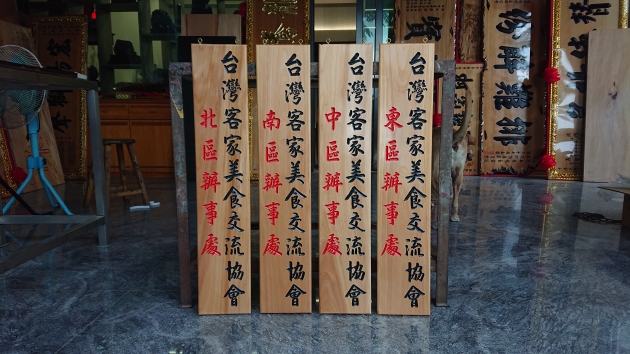 台灣客家美食交流協會
北區辦事處
台灣客家美食交流協會
南區辦事處
台灣客家美食交流協會
中區辦事處
台灣客家美食交流協會
東區辦事處